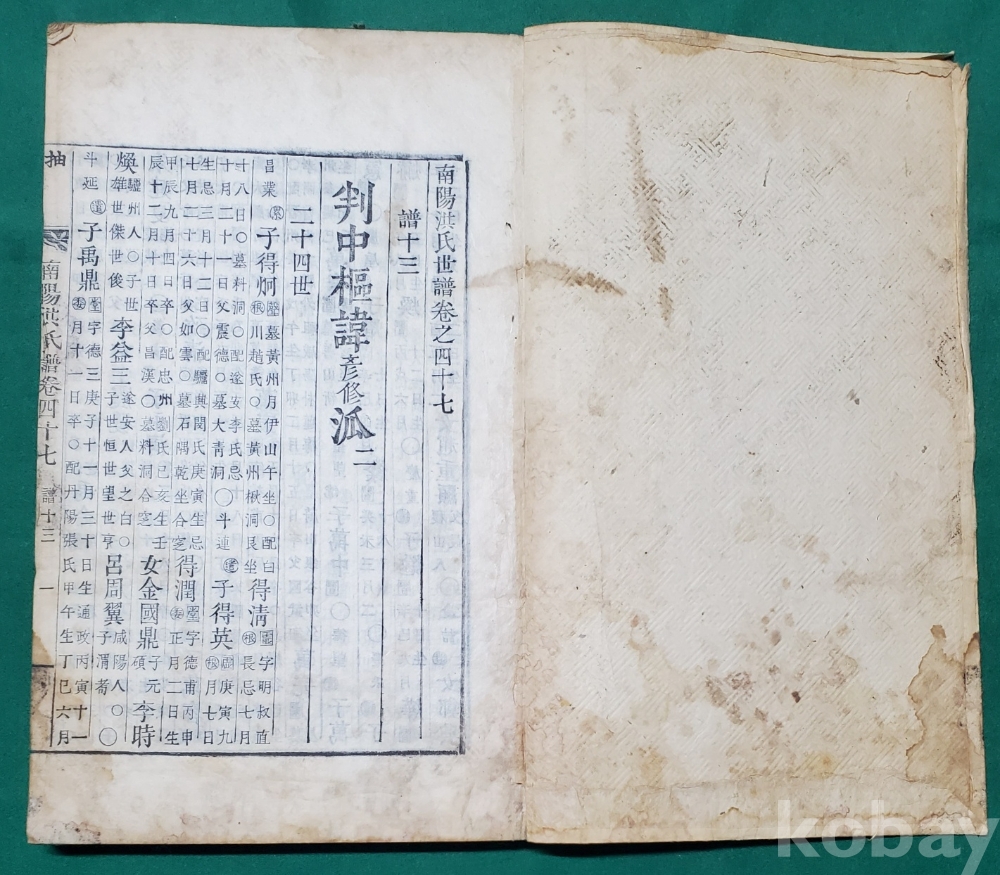 南陽洪氏世譜卷之四十七
譜十三
判中樞諱彦修派二
二十四世
昌業 子得炯 墓黃州月伊山午坐○配白川趙氏○墓黃州楸洞艮坐 得清 字明叔直長忌七月
十八日○墓料洞○配遂安李氏忌十月二十一日父震德○墓大青洞○斗連 子得英 庚寅九月七日
生忌三月十二日○配驪興閔氏庚寅生忌七月二十六日父如雲○墓石隅乾坐合窆 得潤 字德甫丙申正月二日生
甲辰九月四日卒○配忠州劉氏己亥生壬辰十二月十日卒父昌漢○墓料洞合窆 女金國鼎 子元碩 李時
煥 驪州人○子世雄世傑世後 李益三 遂安人父之白○子世恒世望世亨 呂周翼 咸陽人○子渭耆○
斗延 子禹鼎 字德三庚子十一月三十日生通政丙寅十一月十一日卒○配丹陽張氏甲午生丁巳六月
抽
南陽洪氏譜卷四十七 譜十三 一
kobay